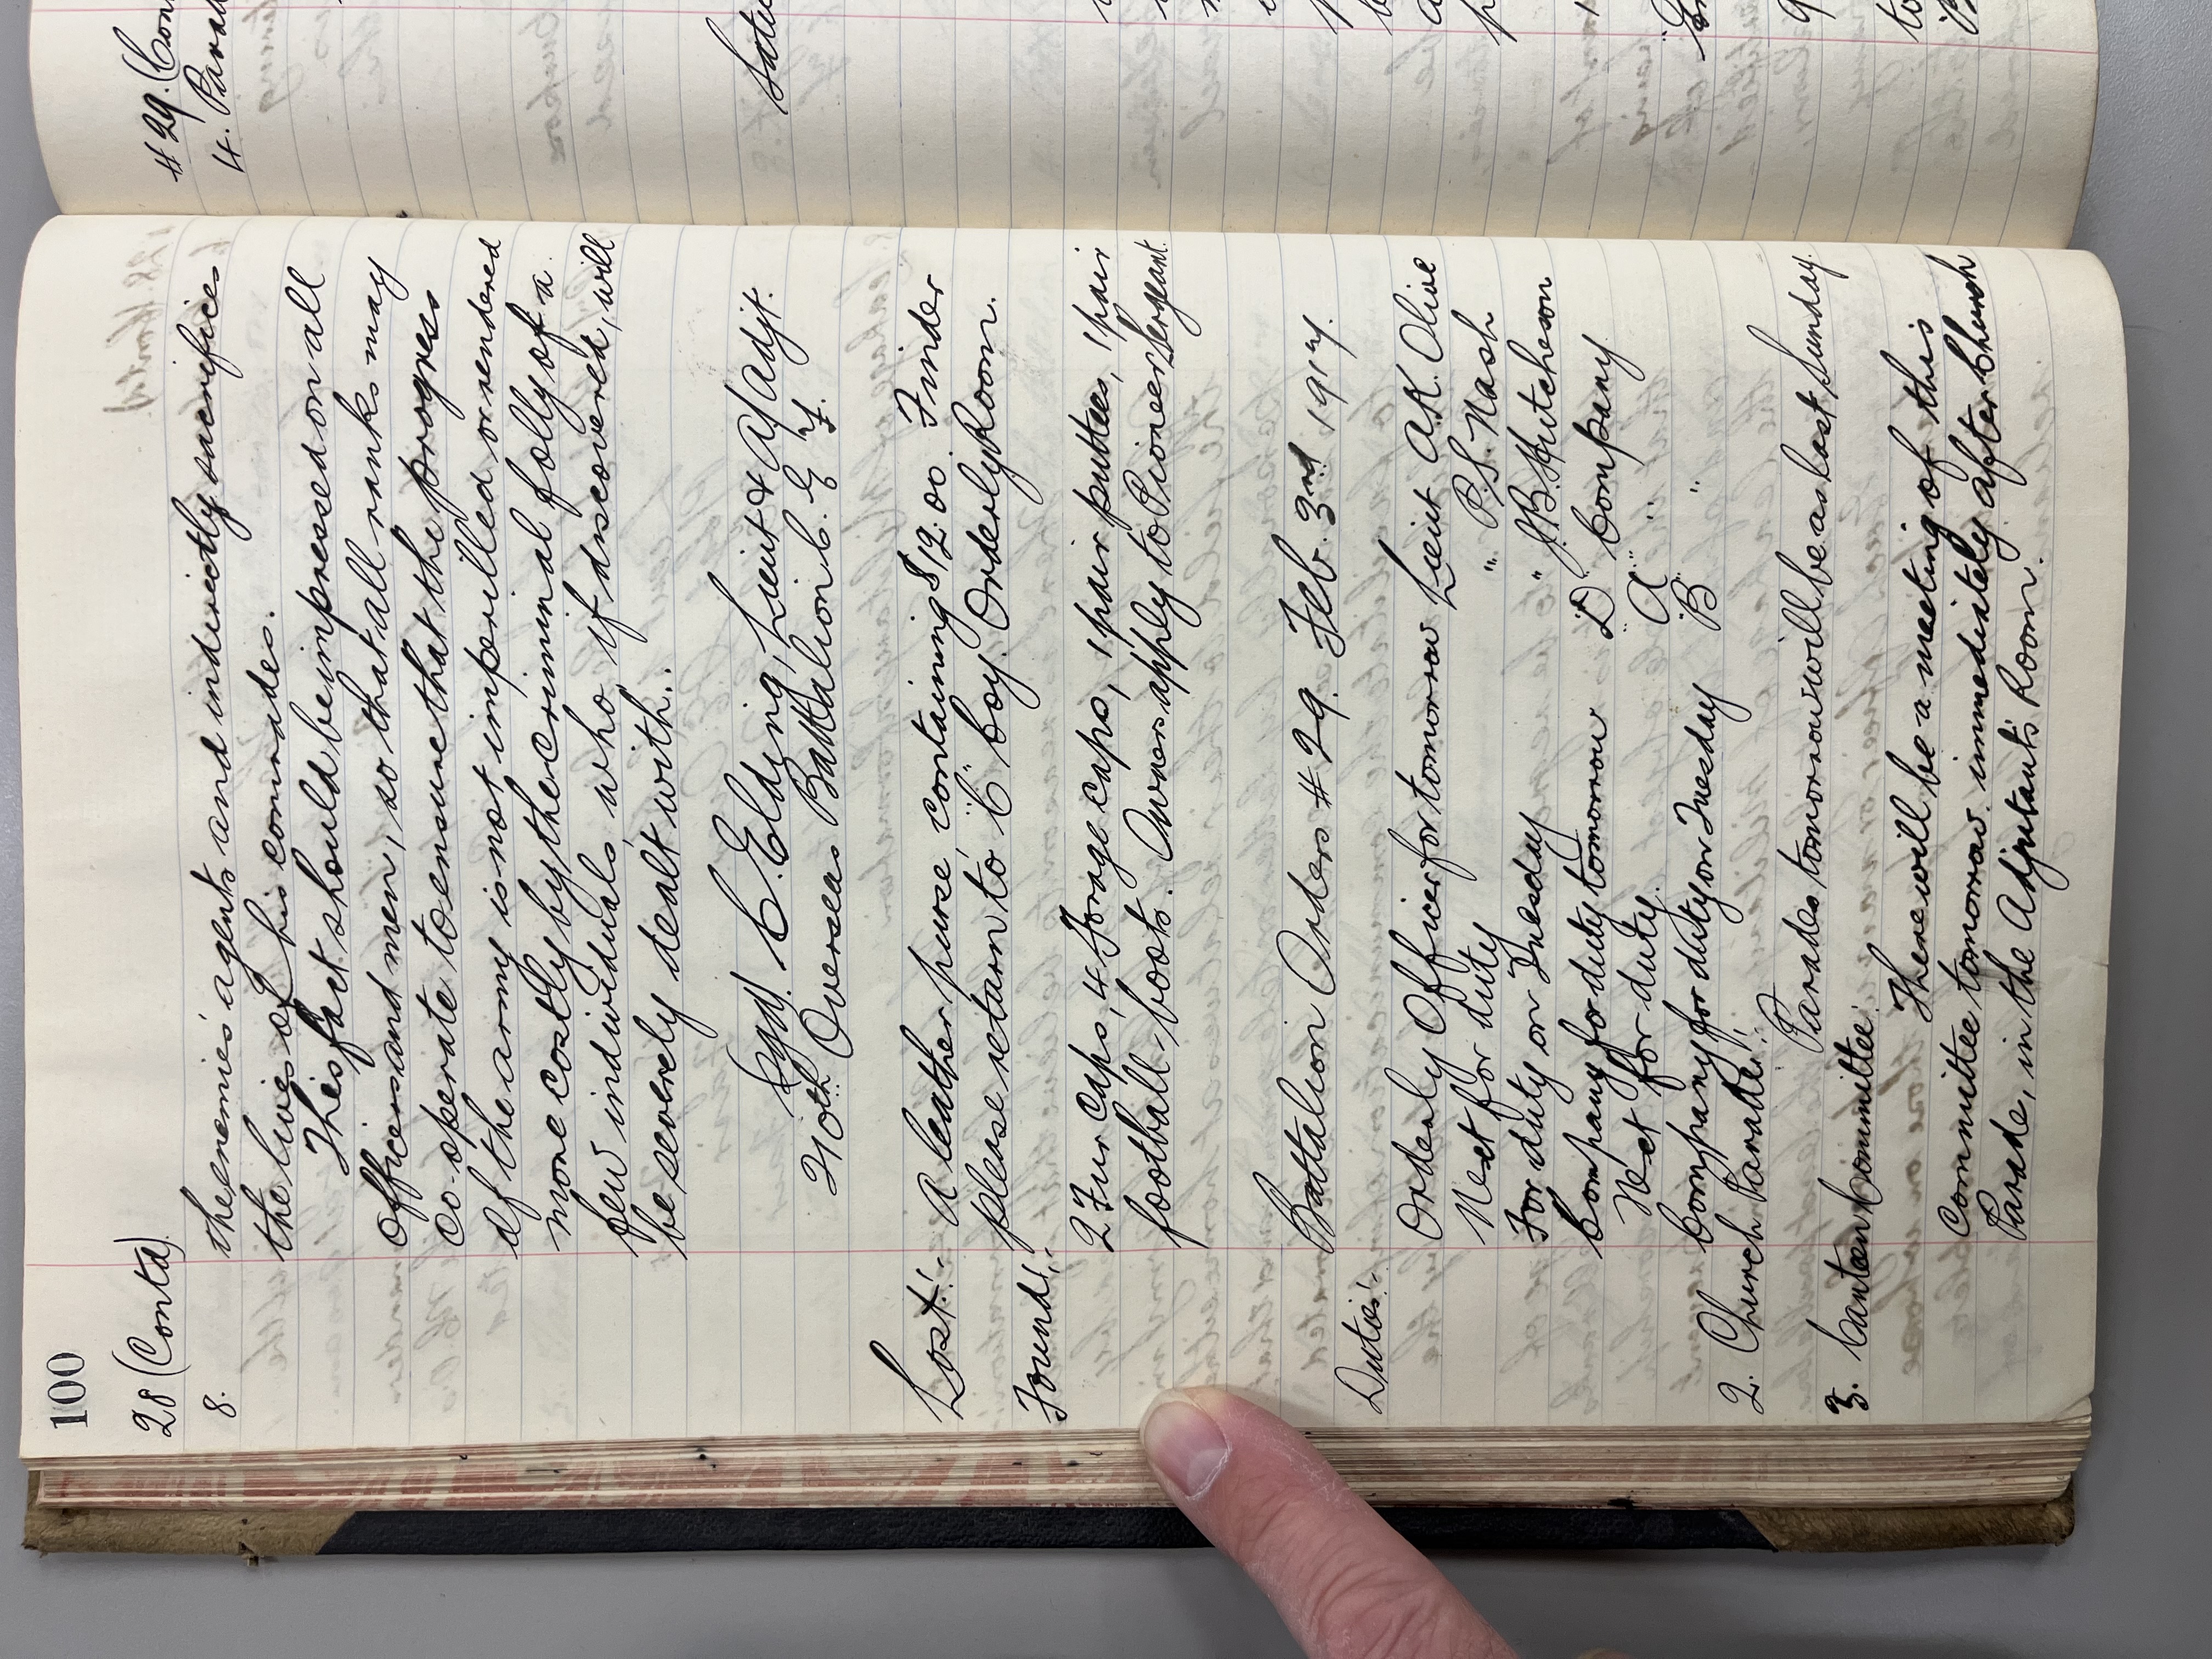 100
28 (Contd)
8.
the enemies' agents and indirectly sacrifices
the lives of his comrades.
This fact should be impressed on all
officers and men, so that all ranks may
co-operate to ensure that the progress
of the army is not imperilled or rendered
more costly by the criminal folly of a
few individuals, who, if discovered, will
be severely dealt with.
(Sgd). C. Elding, Lieut & A/Adjt.
Overseas Battalion C. E. F.
Lost:- A leather purse containing $12.00. Finder
please return to "C" Coy. Orderly Room.
Found:-
2 Fur Caps, 4 forage caps, 1 pair puttees, 1 pair
football-boots. Owners apply to Pioneer Sergeant.
Battalion Orders # 29. Feb. 3rd 1917.
Duties:-
Orderly Officer for tomorrow Lieut A.K. Olive
Next for duty " P.S. Nash
For duty on Tuesday " J.B. Hutcheson
Company for duty tomorrow "D" Company.
Next for duty. "A" "
Company for duty on Tuesday "B" "
2. Church Parade:-
Parades tomorrow will be as last Sunday.
3. Canteen Committee.
There will be a meeting of this
Committee tomorrow immediately after Church
Parade, in the Adjutant's Room.
# 29. (Con
4. Parad
Satu